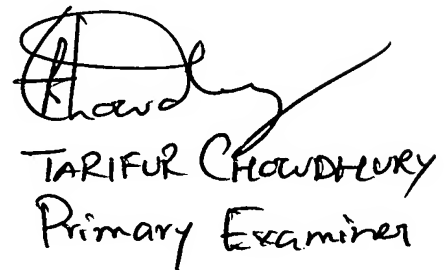 Chowdhury
TARIFUR CHOWDHURY
Primary Examiner